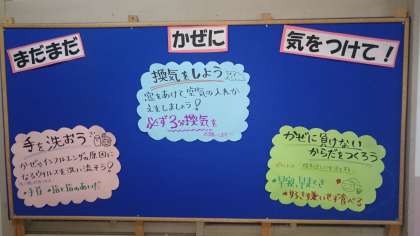 まだまだ
かぜに
気をつけて！
換気をしよう
窓をあけて空気の入れか
えをしましょう！
必ず3分換気を
手を洗おう
かぜやインフルエンザの原因に
なるウイルスを洗い流そう！
かぜに負けない
からだをつくろう
早寝、早起き
好き嫌いせず食べる